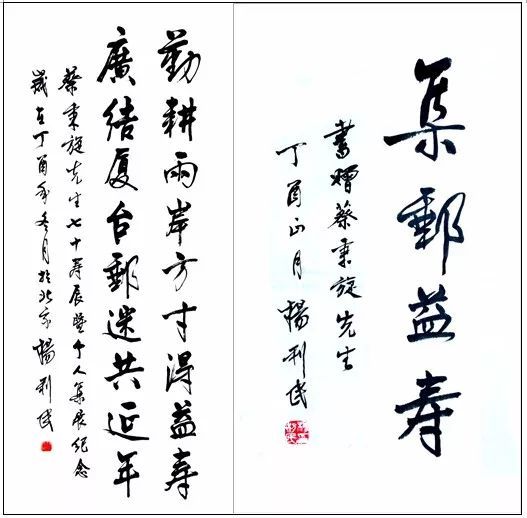 勤耕兩岸方寸得益寿
廣结厦台郵迷共延年
蔡秉旋先生七十寿辰暨个人集展纪念
歲在丁酉年冬月於北京 楊利民
集郵益寿
書贈蔡秉旋先生
丁酉正月 楊利民